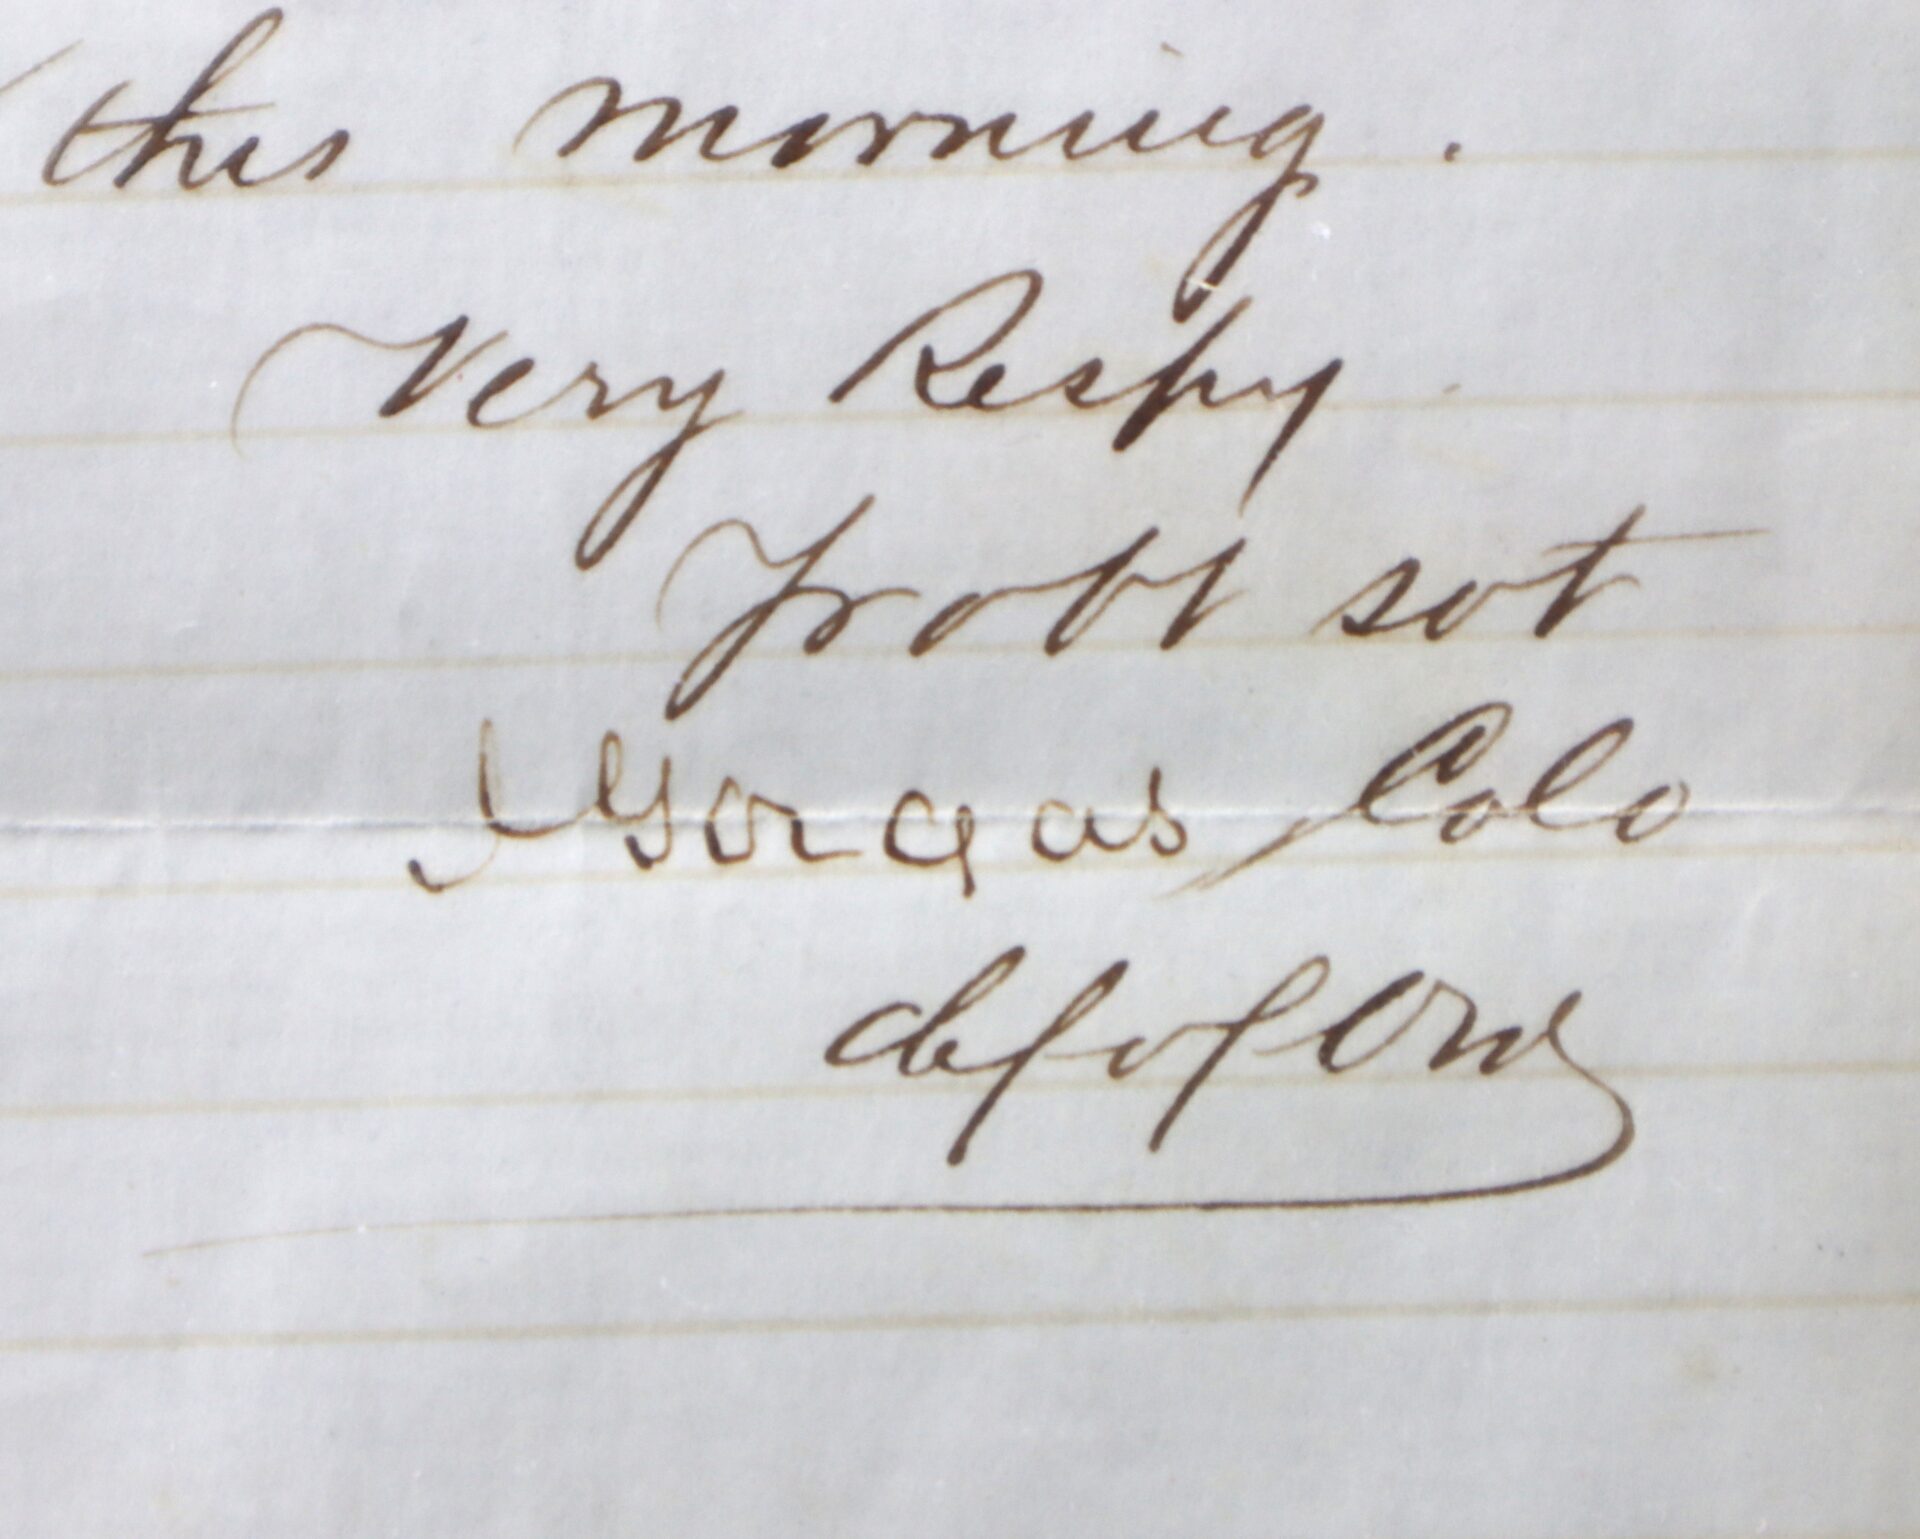 this morning.
Very Respy
Yr obt svt
J Gorgas Colo
chf of Ord